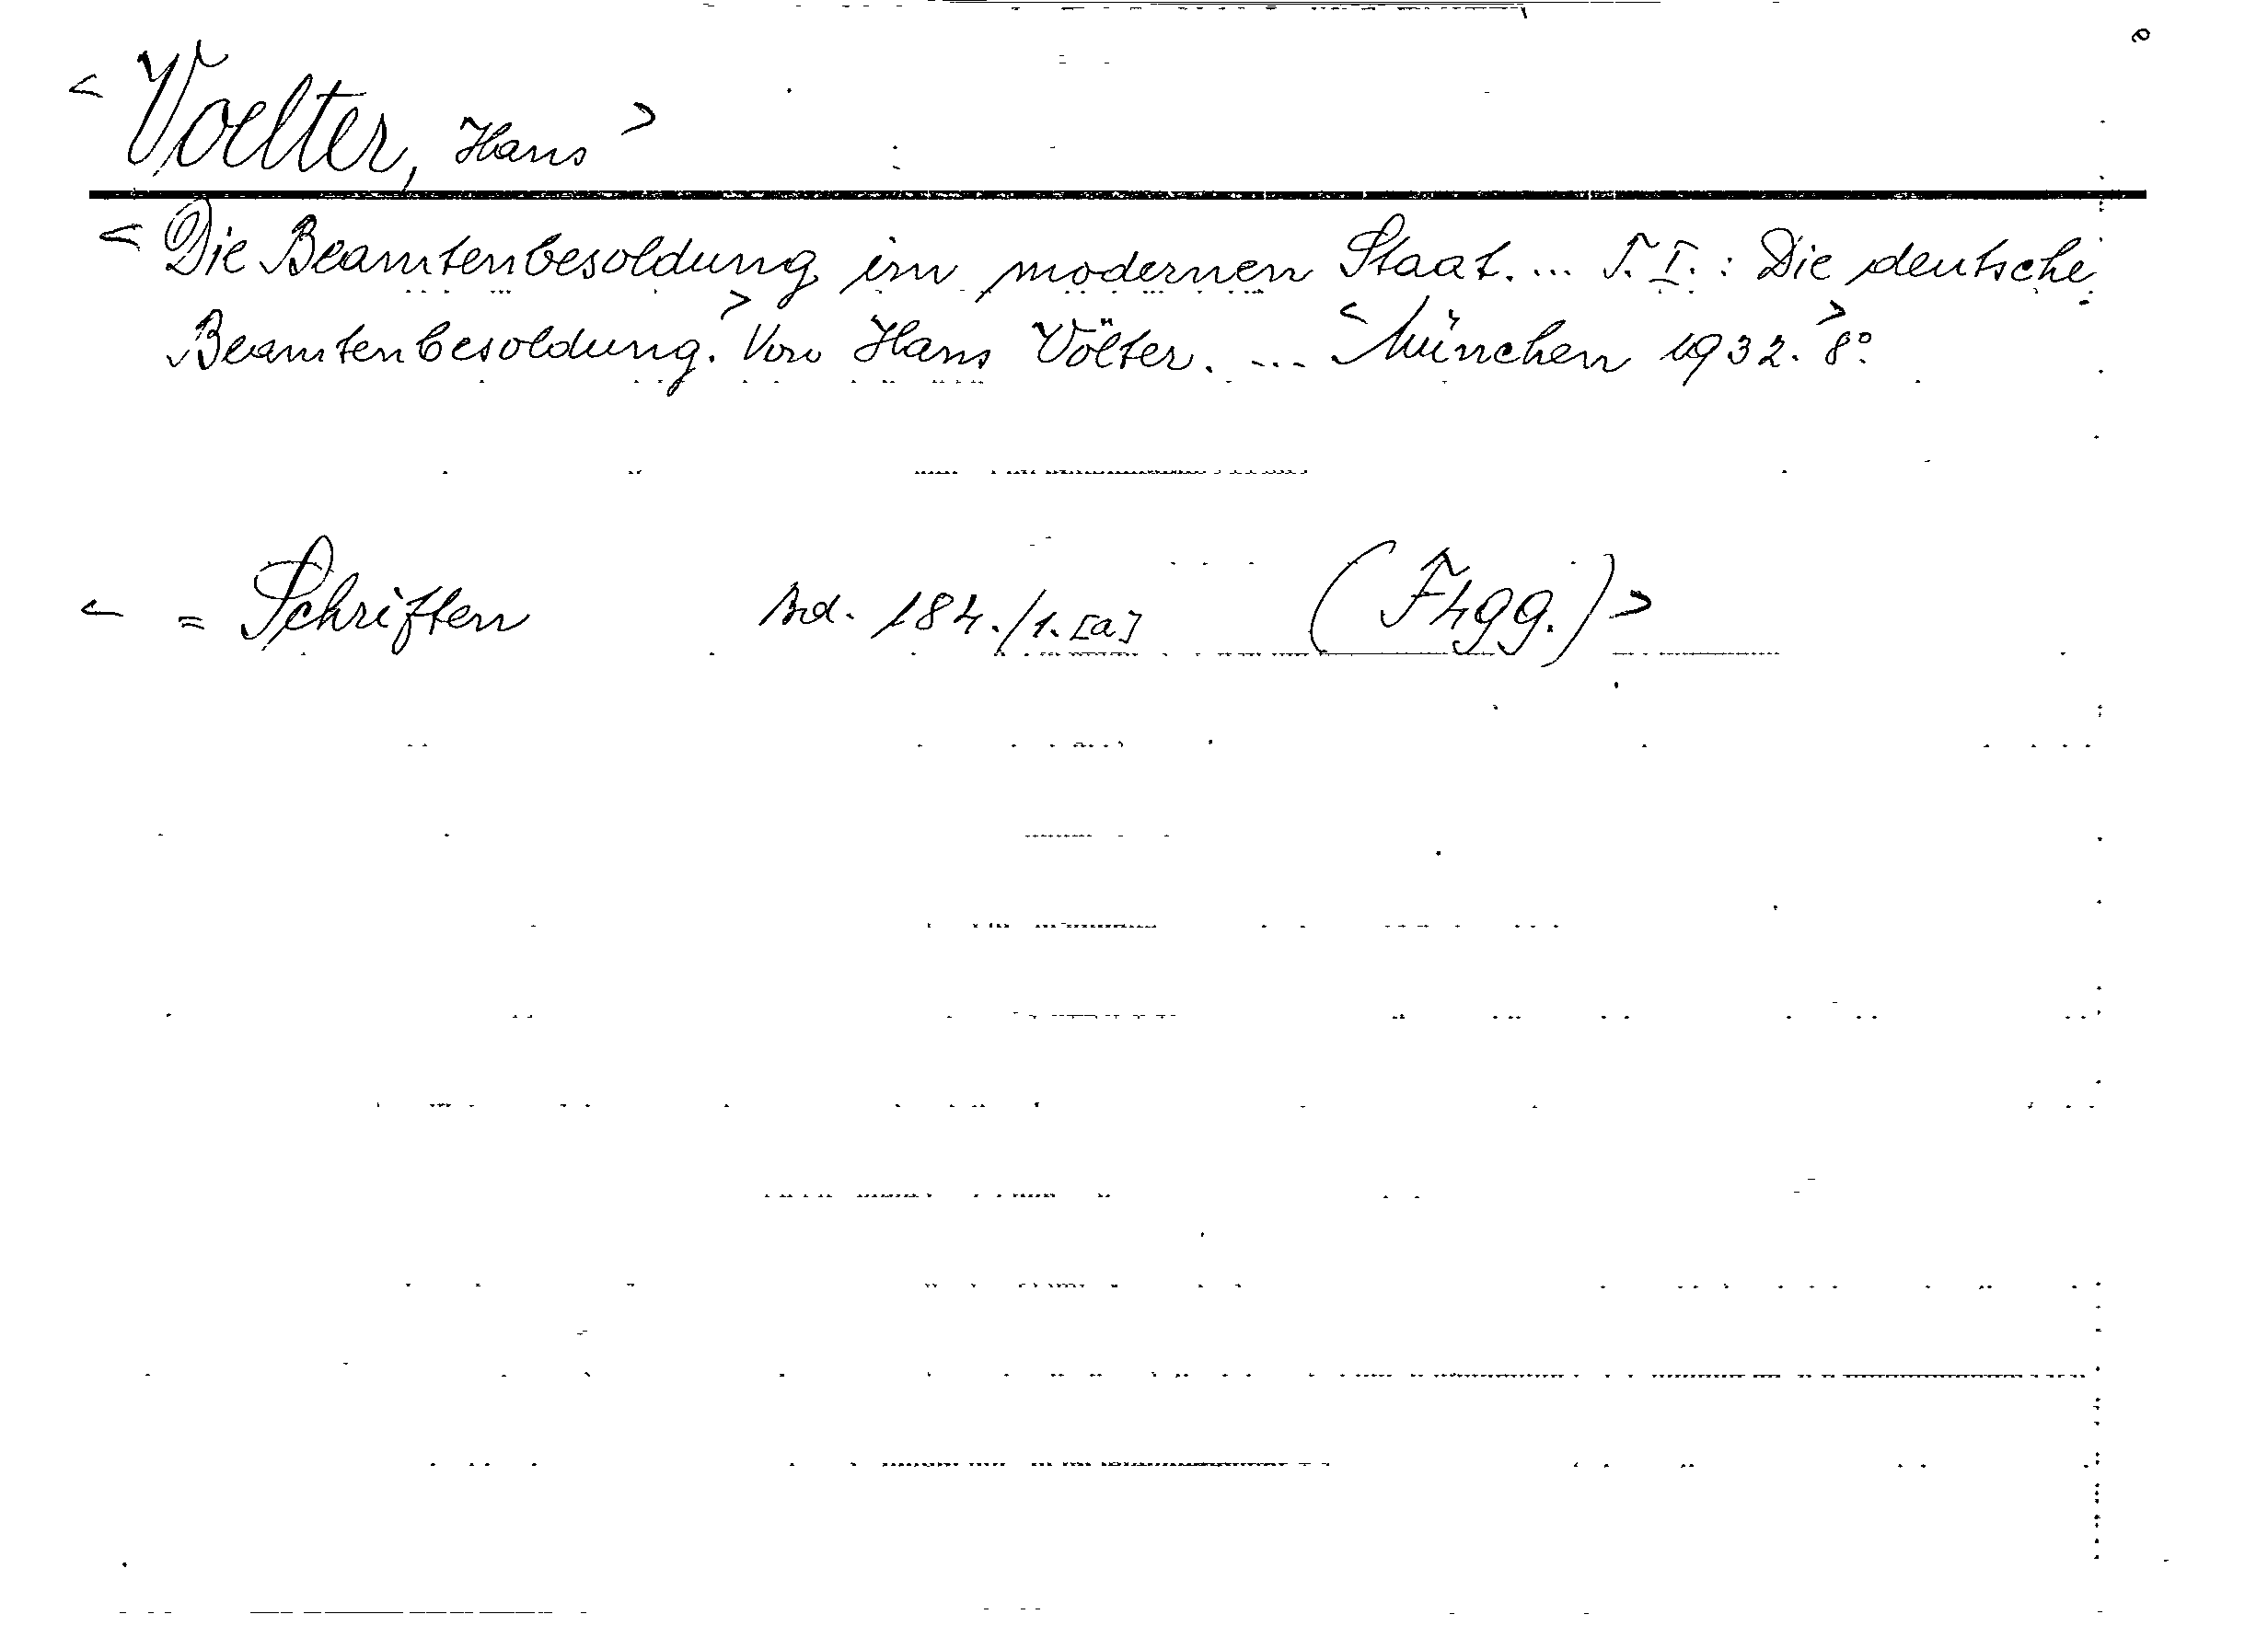 < Voelter, Hans >
< Die Beamtenbesoldung im modernen Staat. ... T. I. : Die deutsche
Beamtenbesoldung. > Von Hans Völter. ... < München 1932. > 8°.
< = Schriften Bd. 184./1. [a] (F4gg.) >